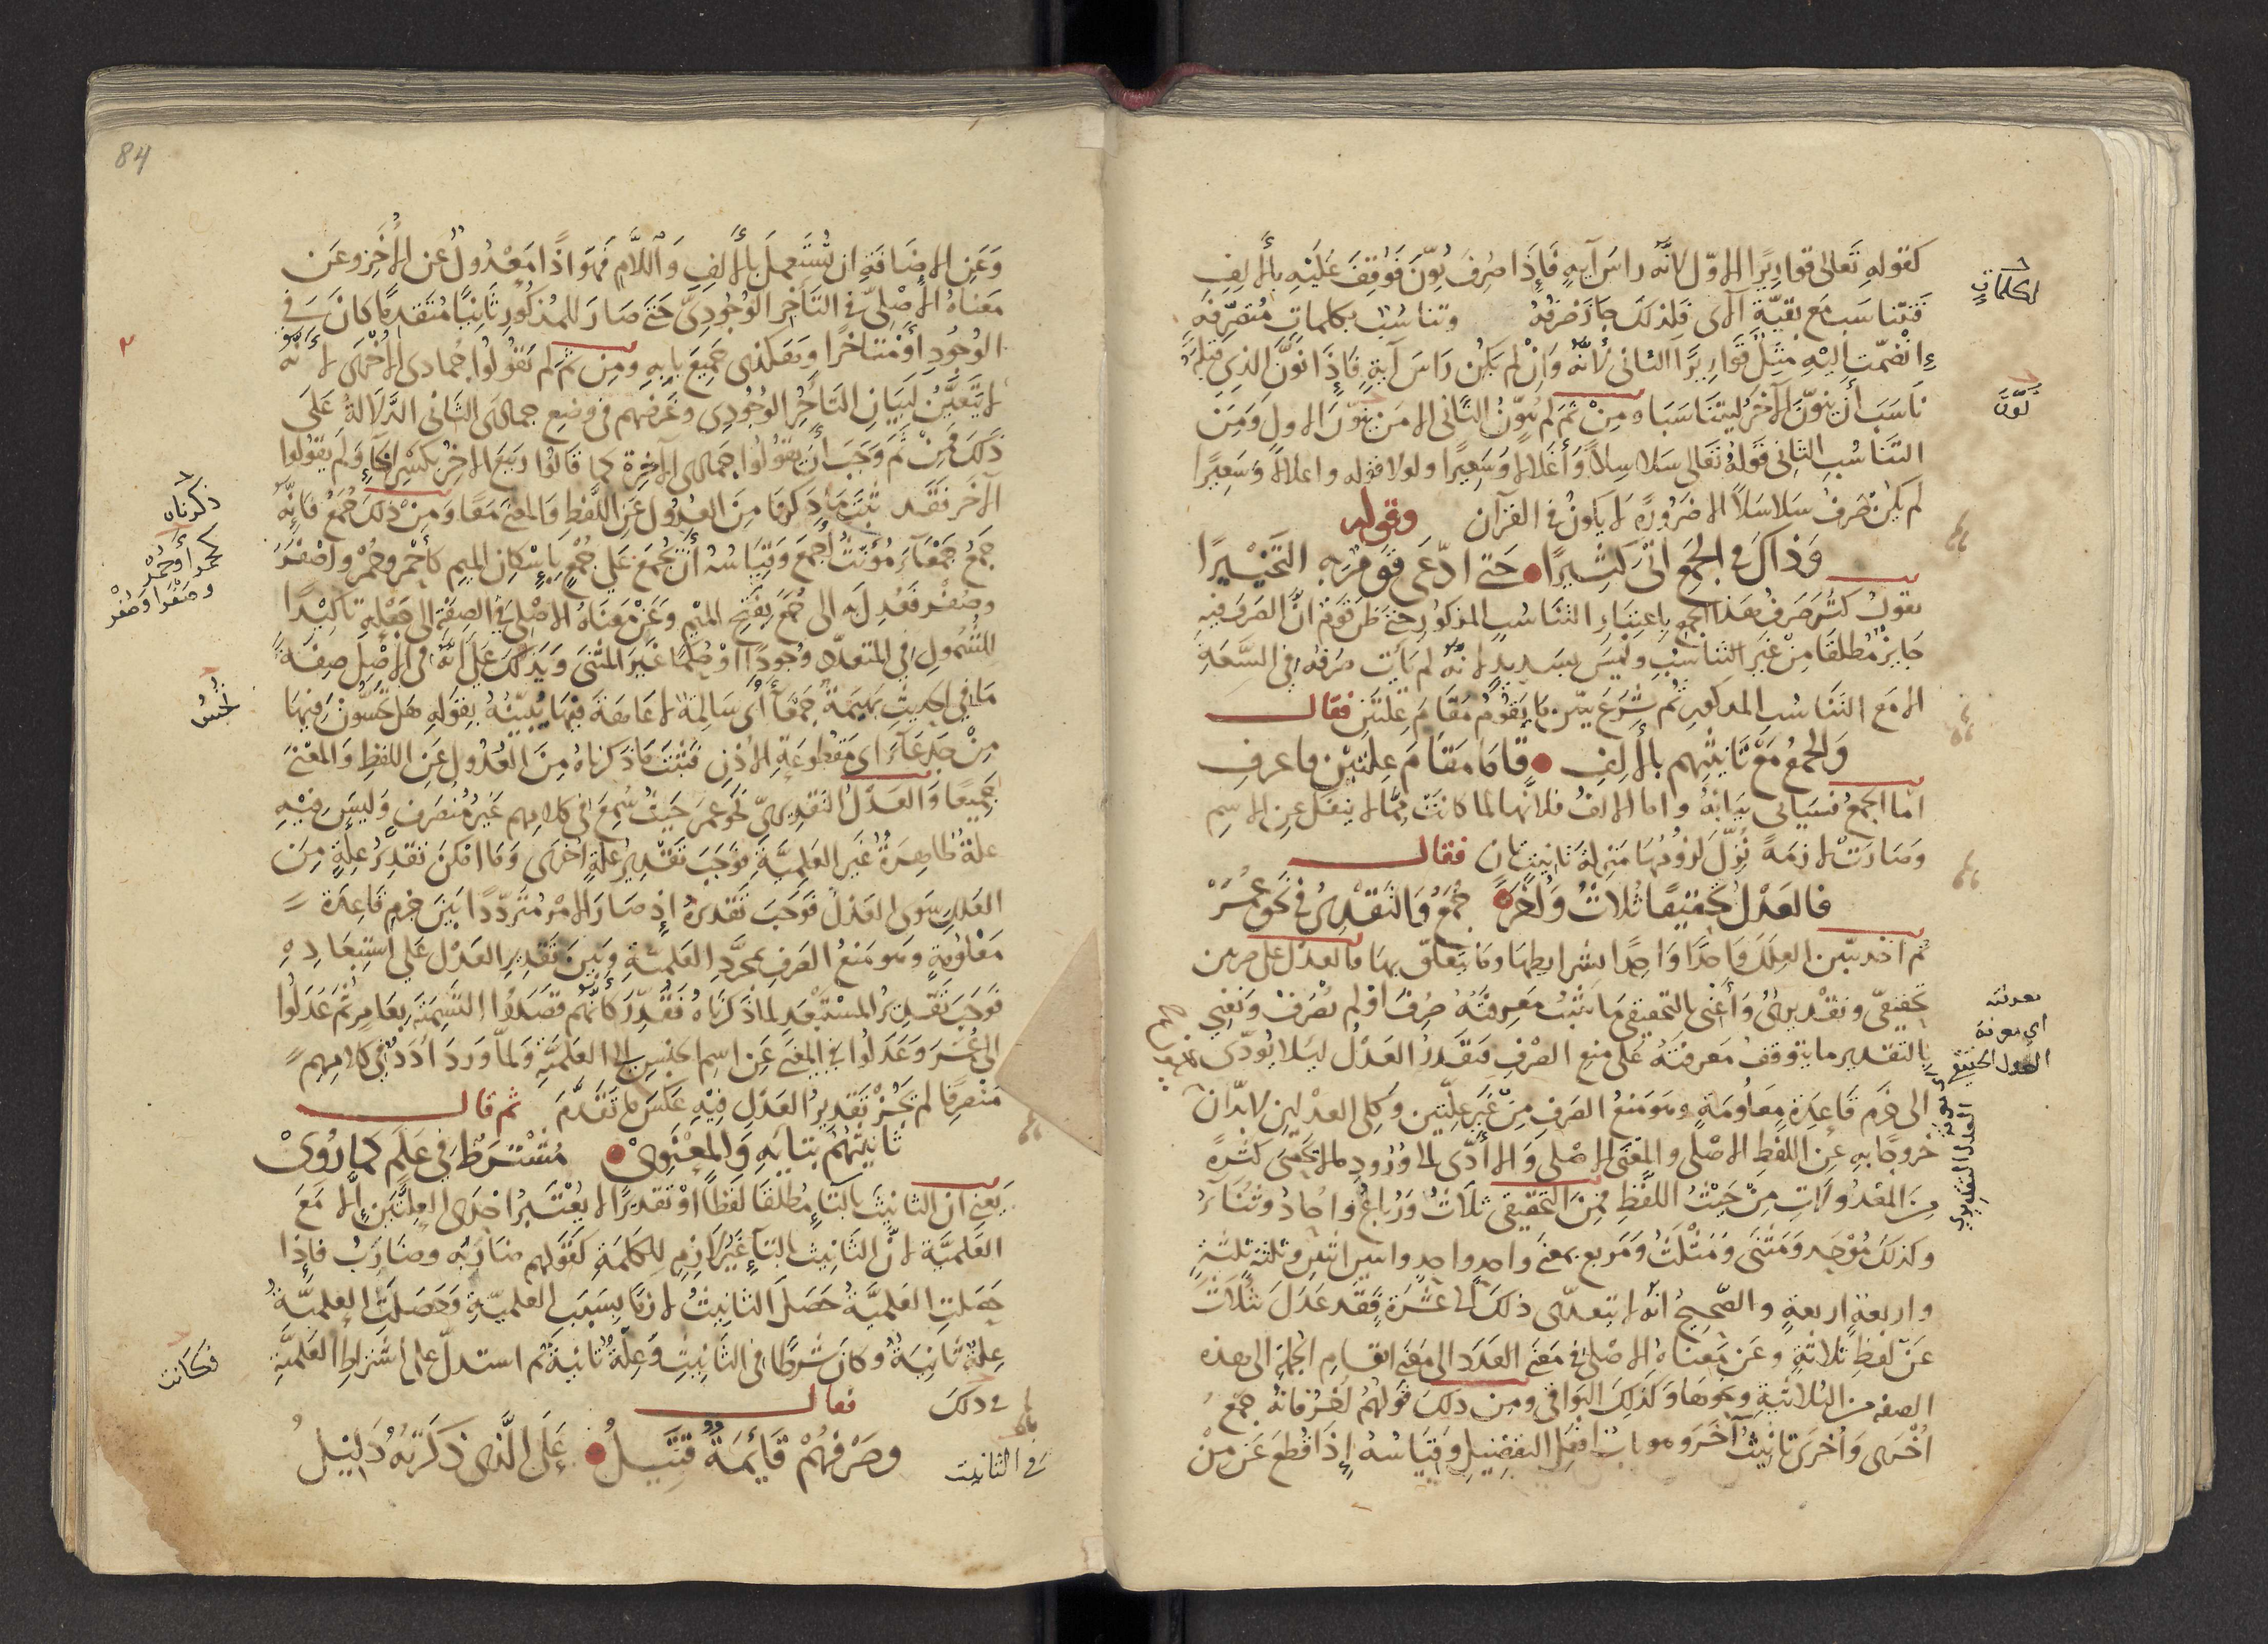 كقوله تعالى قواريرا الاول لانه راس آية فاذا صرف نون فوقف عليه بالالف
فتناسب مع بقية الآى فلذلك جاز صرفه وتناسب بكلمات منصرفة
انضمت اليه مثل قواريرا الثانى لأنه وان لم يكن راس آية فاذا نون الذى قبله
ناسب أن ينون الآخر ليتناسبا ومن ثم لم ينون الثانى الا من ينون الاول ومن
التناسب الثانى قوله تعالى سلاسلاً وأغلالا وسعيرا ولولا قوله واغلالا وسعيرا
لم يكن صرف سلاسلاً الا ضرورة لا يكون فى القرآن وقوله
وذاك فى الجمع اتى كثيرا حتى ادعى قوم به التخييرا
يقول كثر صرف هذا الجمع باعتبار التناسب المذكور حتى ظن قوم ان الصرف فيه
جايز مطلقا من غير التناسب وليس بسديد لانه لم يأت صرفه فى السعة
الا مع التناسب المذكور ثم شرع يبين ما يقوم مقام علتين فقال
والجمع مع تانيثهم بالالف قاما مقام علتين فاعرف
اما الجمع فسياتى بيانه واما الالف فلانها لما كانت مما لا ينفك عن الاسم
وصارت لازمة نزل لزومها منزلة تانيث ثان فقال
فالعدل تحقيقا ثلاث وأخر جمع والتقدير فى نحو عمر
ثم اخذ يبين العلل واحدا واحدا بشرايطها وما يتعلق بها فالعدل على ضربين
تحقيقى وتقديرى وأعنى بالتحقيقى ما يثبت معرفته صرف او لم يصرف ونعنى
بالتقدير ما يتوقف معرفته على منع الصرف فيقدر العدل ليلا يؤدى
الى خرم قاعدة معلومة وهو منع الصرف من غير علتين وكلى العدلين لا بد ان
خروجا به عن اللفظ الاصلى والمعنى الاصلى والا أدى الى ورود ما لا يحصى كثرة
من المعدولات من حيث اللفظ فمن التحقيقى ثلاث ورباع واحاد وثناء
وكذلك موحد ومثنى ومثلث ومربع بمعنى واحد واحد واثنين اثنين وثلثة ثلثة
واربعة اربعة والصحيح انه لا يتعدى ذلك الى عشرة فقد عدل ثلاث
عن لفظ ثلاثة وعن معناه الاصلى فى معنى العدد الى معنى انقسام الجملة الى هذه
الصفة من الثلاثية ونحوها وكذلك البواقى ومن ذلك قولهم أخر فانه جمع
أخرى وأخرى تانيث آخر وهو باب افعل التفضيل وقياسه إذا قطع عن من
لكلمات
نون
بمعرفته
اى معرفة
العدل الحقيقى
معرفة
العدل التقديرى
84
وعن الاضافة ان يستعمل بالالف واللام فهو اذا معدول عن الأخر وعن
معناه الاصلى فى التأخر الوجودى حتى صار للمذكور ثانيا متقدما كان فى
الوجود أو متأخرا وهكذى جميع بابه ومن ثم لم يقولوا جمادى الاخرى لأنه
لا يتعين لبيان التأخر الوجودى وغرضهم فى وضع جمادى الثانى الدلالة على
ذلك فمن ثم وجب أن يقولوا جمادى الآخرة كما قالوا ربيع الآخر بكسر الخاء ولم يقولوا
الآخر فقد ثبت ما ذكرنا من العدول عن اللفظ والمعنى معا ومن ذلك جمع فانه
جمع جمعاء مؤنث أجمع وقياسه أن يجمع على جمع باسكان الميم كأحمر وحمر وأصفر
وصفر فعدل به الى جمع بفتح الميم وعن معناه الاصلى فى الصفة الى جعله تأكيدا
للشمول فى المتعدد وجودا او حكما غير المثنى ويدلك على انه فى الاصل صفة
ما فى الحديث بهيمة جمعاء أى سالمة لا عاهة فيها يبينه بقوله هل تحسون فيها
من جدعاء اى مقطوعة الاذن فثبت ما ذكرناه من العدول عن اللفظ والمعنى
جميعا والعدل التقديرى نحو عمر حيث سمع فى كلامهم غير منصرف وليس فيه
علة ظاهرة غير العلمية فوجب تقدير علة اخرى وما امكن تقدير علة من
العلل سوى العدل فوجب تقديره إذ صار الامر مترددا بين خرم قاعدة
معلومة وهو منع الصرف بمجرد العلمية وبين تقدير العدل على استبعاده
فوجب تقدير المستبعد لما ذكرناه فقدر كأنهم قصدوا التسمية بعامر ثم عدلوا
الى عمر وعدلوا فى المعنى عن اسم الجنس الى العلمية ولما ورد أدد فى كلامهم
منصرفا لم يجز تقدير العدل فيه عكس ما تقدم ثم قال
تانيثهم بتايه والمعنوى مشترط فى علم كما روى
يعنى ان التانيث بالتاء مطلقا لفظا او تقديرا لا يعتبر احدى العلتين إلا مع
العلمية لان التانيث بالتاء غير لازم للكلمة كقولهم ضاربه وضارب فاذا
حصلت العلمية حصل التانيث لازما بسبب العلمية وحصلت العلمية
علة ثانية وكان شرطا فى التانيث وعلة ثانية ثم استدل على اشتراط العلمية
فى ذلك فقال
وصرفهم قايمة قتيل على الذى ذكرته دليل
ذكرناه
كحمرا وحمر
وصفرا وصفر
تحس
فكانت
فى التانيث